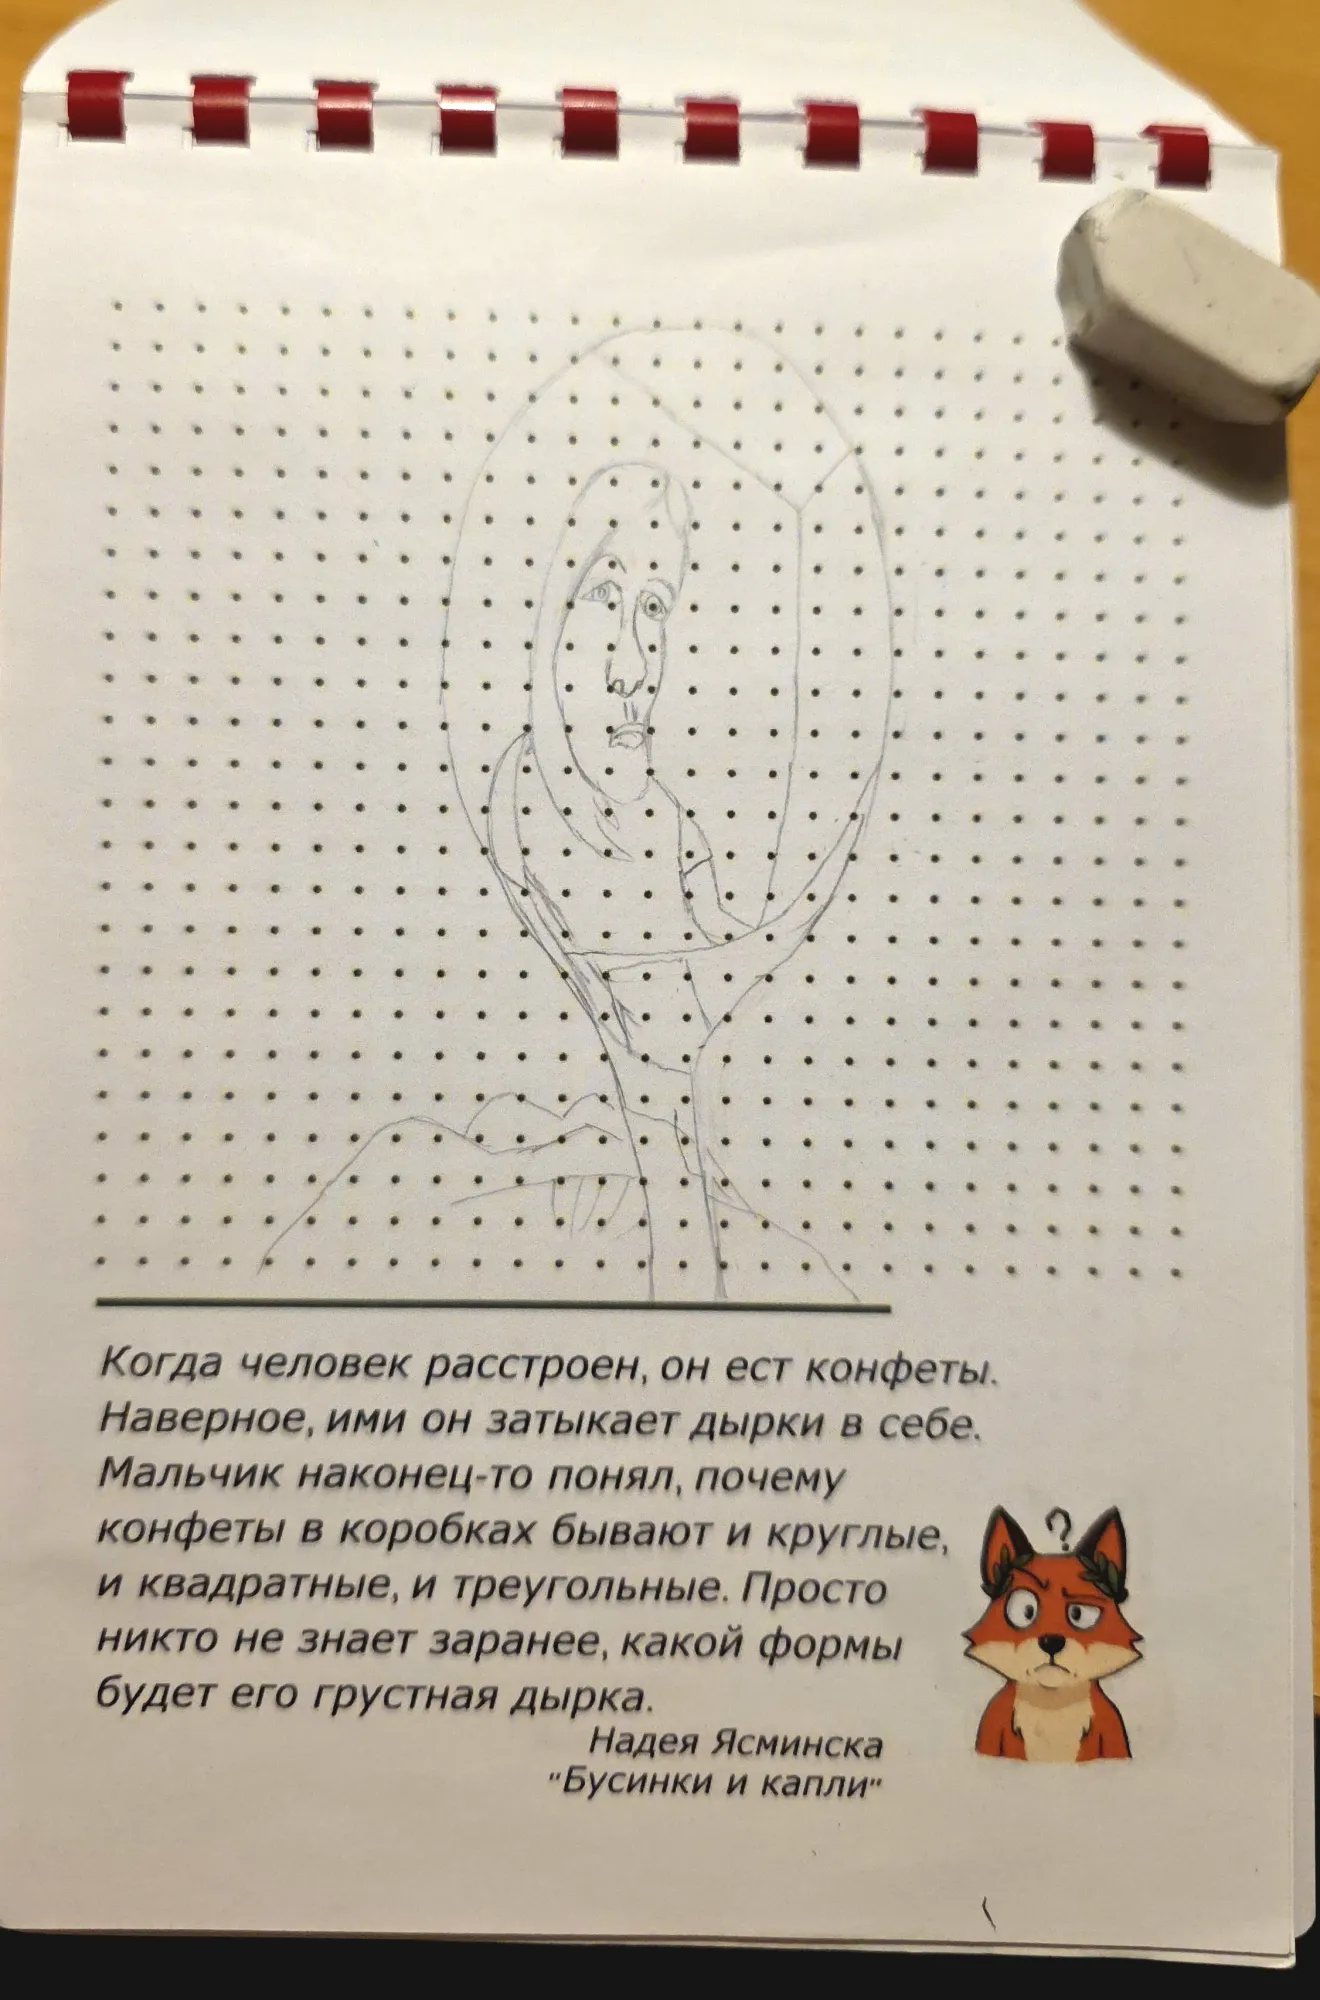 Когда человек расстроен, он ест конфеты.
Наверное, ими он затыкает дырки в себе.
Мальчик наконец-то понял, почему
конфеты в коробках бывают и круглые,
и квадратные, и треугольные. Просто
никто не знает заранее, какой формы
будет его грустная дырка.
Надея Ясминска
"Бусинки и капли"
?